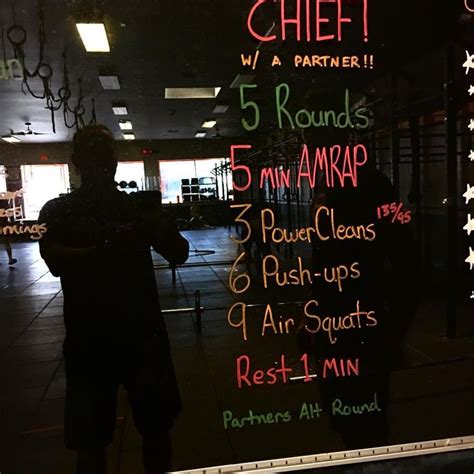 CHIEF!
W/ A PARTNER!!
5 Rounds
5 MIN AMRAP
3 Power Cleans 135/95
6 Push-ups
9 Air Squats
Rest 1 MIN
Partners Alt Round